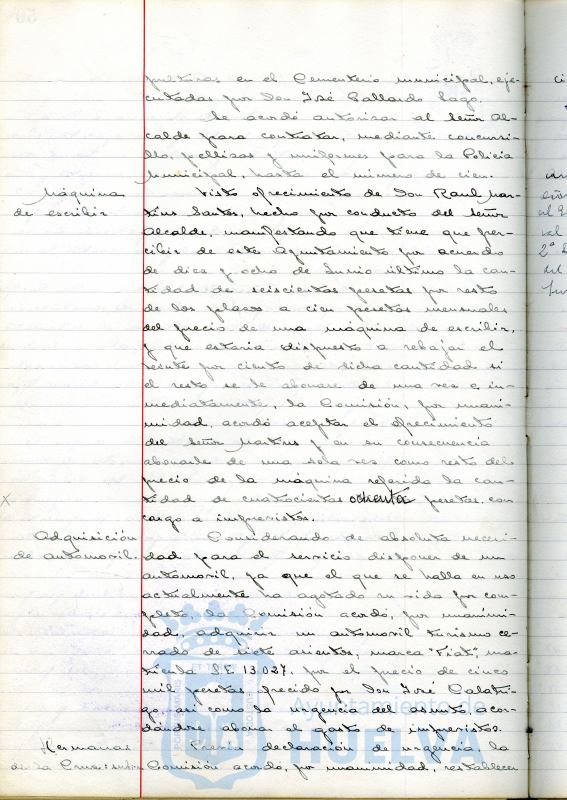 pulturas en el Cementerio municipal, eje-
cutadas por Don José Gallardo Lago.
Se acordó autorizar al Señor Al-
calde para contratar, mediante concursi-
llo, pellizas y uniformes para la Policía
Municipal, hasta el número de cien.
Máquina
de escribir
Visto ofrecimiento de Don Raul Mar-
tins Santos, hecho por conducto del Señor
Alcalde, manifestando que tiene que per-
cibir de este Ayuntamiento por acuerdo
de diez y ocho de Junio último la can-
tidad de seiscientas pesetas por resto
de los plazos a cien pesetas mensuales
del precio de una máquina de escribir,
y que estaría dispuesto a rebajar el
veinte por ciento de dicha cantidad si
el resto se le abonase de una vez e in-
mediatamente, la Comisión, por unani-
midad, acordó aceptar el ofrecimiento
del Señor Martins y en su consecuencia
abonarle de una sola vez como resto del
precio de la máquina referida la can-
tidad de cuatrocientas ochenta pesetas con
cargo a imprevistos.
Adquisición
de automovil.
Considerando de absoluta necesi-
dad para el servicio disponer de un
automovil, ya que el que se halla en uso
actualmente ha agotado su vida por com-
pleto, la Comisión acordó, por unanimi-
dad, adquirir un automovil turismo ce-
rrado de siete asientos, marca "Fiat", ma-
trícula S.E. 13.027, por el precio de cinco
mil pesetas, ofrecido por Don José
go, así como la urgencia del asunto acor-
dándose abonar el gasto de imprevistos.
Hermanas
de la Cruz:
Previa declaración de urgencia la
Comisión acordó, por unanimidad, restablecer
Ayuntamiento de
HUELVA